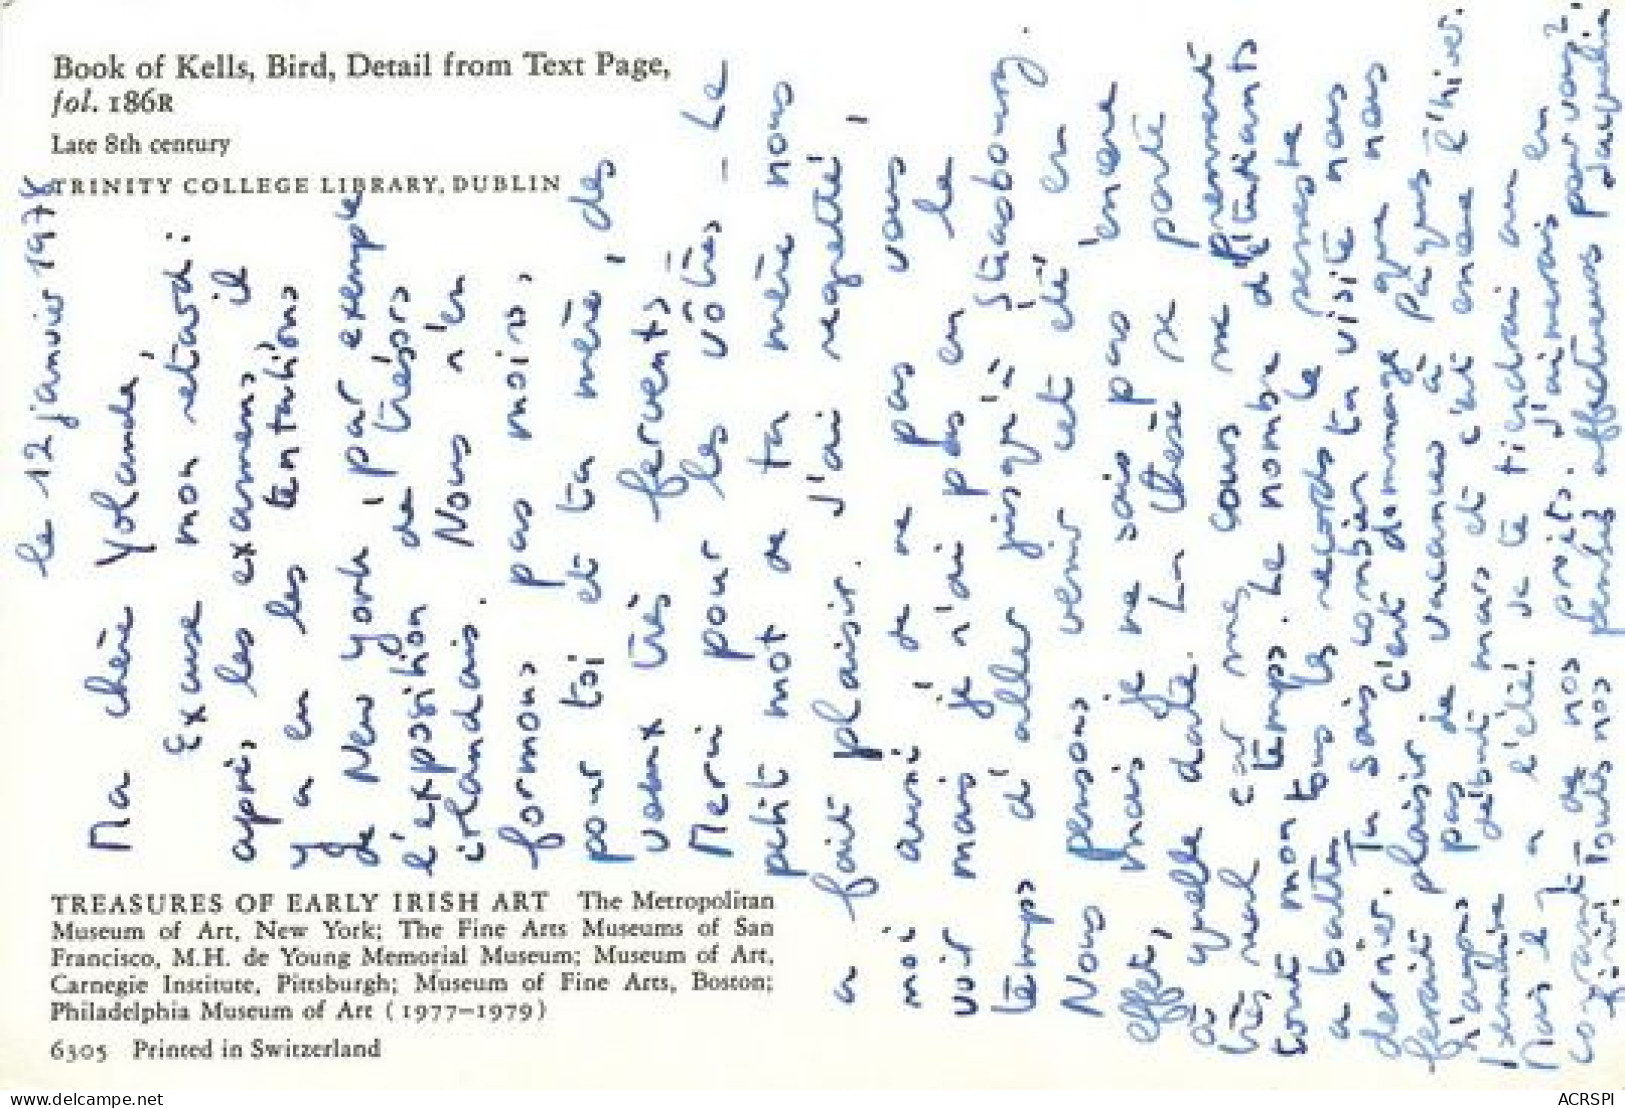 Book of Kells, Bird, Detail from Text Page,
fol. 186R
Late 8th century
TRINITY COLLEGE LIBRARY, DUBLIN
le 12 janvier 1978
Ma chère Yolande,
Excuse mon retard :
après les examens, il
y a eu les tentations
de New York, par exemple
l'exposition de trésors
irlandais. Nous n'en
formons pas moins,
pour toi et ta mère, des
vœux très fervents.
Merci pour les vôtres - Le
petit mot de ta mère nous
a fait plaisir. J'ai regretté,
moi aussi, de ne pas vous
voir mais je n'ai pas eu le
temps d'aller jusqu'à Strasbourg.
Nous pensons venir cet été en
effet, mais je ne sais pas encore
à quelle date. La thèse se porte
très mal car mes cours me prennent
tout mon temps. Le nombre d'étudiants
a battu tous les records le semestre
dernier. Tu sais combien ta visite nous
ferait plaisir, c'est dommage que nous
n'ayons pas de vacances à Pâques :
début mars et c'est encore l'hiver.
Mais il y a l'été! Je te tiendrai au
courant de nos projets. J'aimerais en
Toutes nos pensées affectueuses pour vous 2.
Jacqueline
TREASURES OF EARLY IRISH ART The Metropolitan
Museum of Art, New York; The Fine Arts Museums of San
Francisco, M.H. de Young Memorial Museum; Museum of Art,
Carnegie Institute, Pittsburgh; Museum of Fine Arts, Boston;
Philadelphia Museum of Art (1977–1979)
6305 Printed in Switzerland
www.delcampe.net
ACRSPI